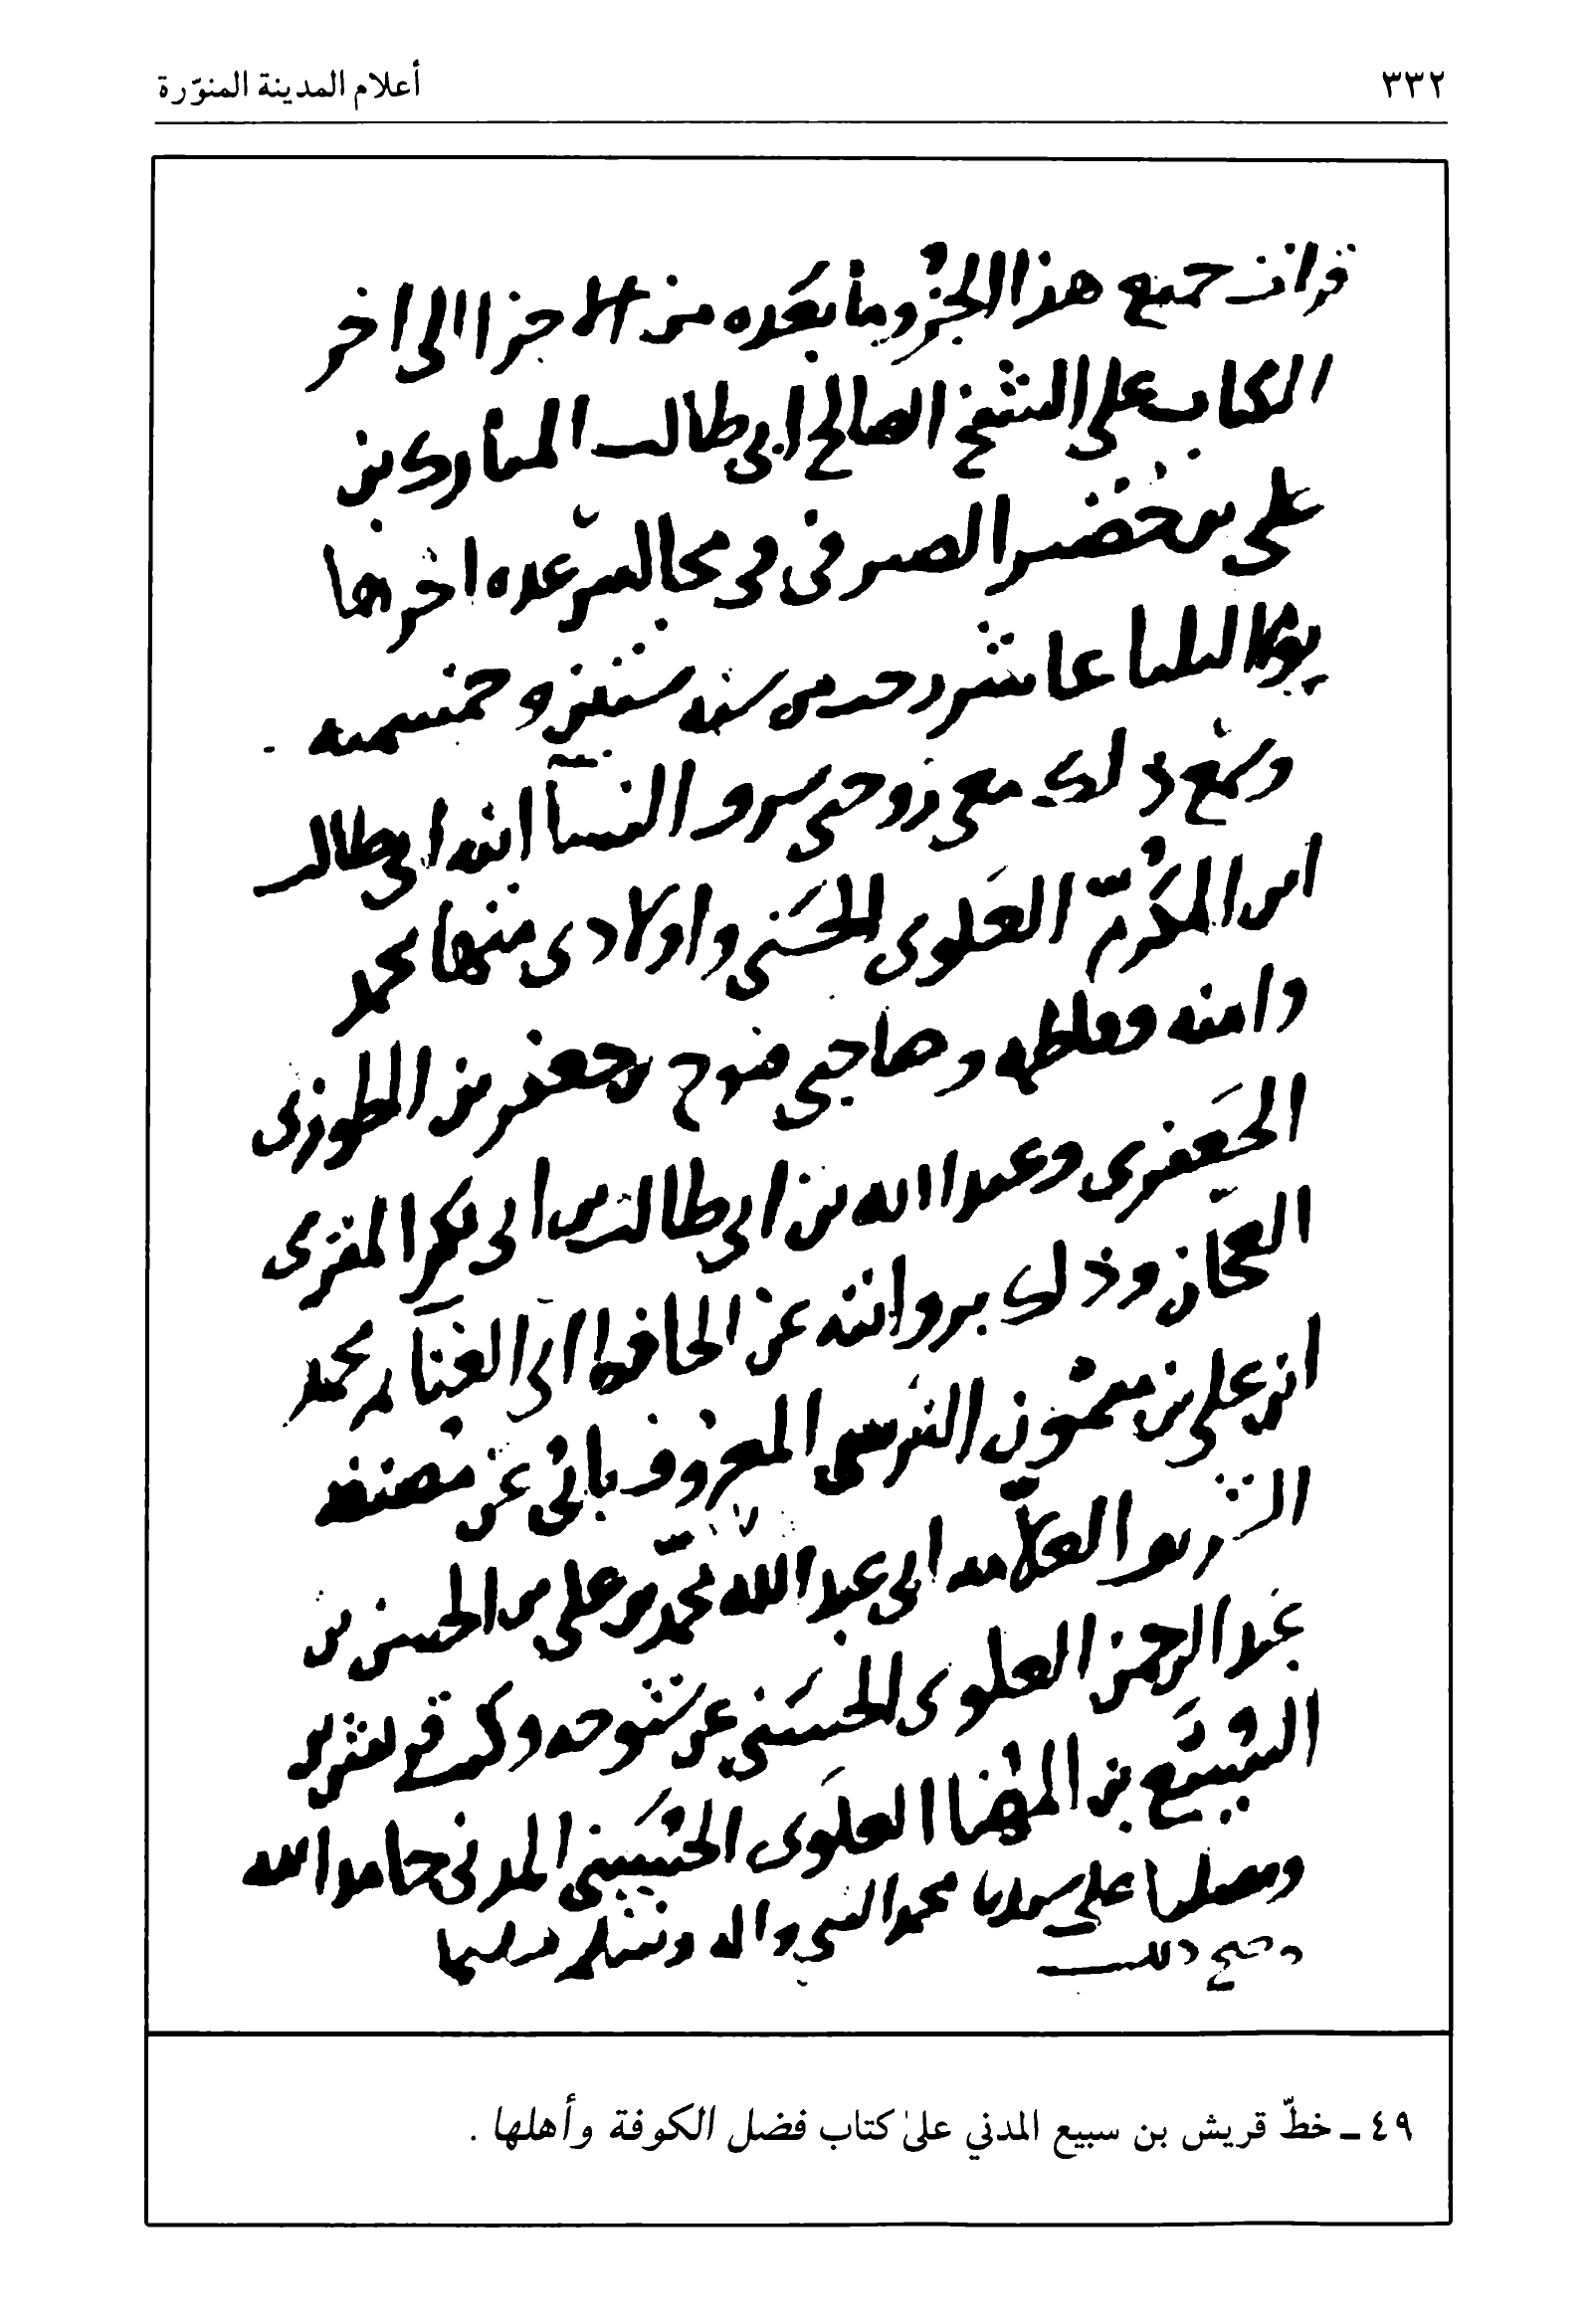 ٣٣٢
أعلام المدينة المنوّرة
قرات جميع هذا الجزو وما بعده من الاجزا الى اخر
الكتاب على الشيخ الصالح ابى طالب المبارك بن
على بن خضير الصيرفى فى مجالس عده اخرها
يوم الثلثا عاشر رجب من سنه ستين وخمسميه
وسمع ذلك معى زوجتى النسا ابنه ابى طالب
ابن المكرّم العلوى الحسنى واولادى منها محمد
وامنه وفاطمه وصاحبى بن جعفر بن
الجعفرى وعبد الله بن ابى طالب بن ابى بكر المقرى
وذلك بروايته عن الحافظ ابى الغنايم محمد
ابن على بن ميمون النرسى المعروف بابى عن مصنفه
الشريف العلّامه ابى عبد الله محمّد بن على بن الحسن بن
عبد الرحمن العلوى الحسنى عن شيوخه وكتب قريش بن
السبيع بن المهنا العلوى الحسينى المدنى حامدا لله
ومصليا على سيدنا محمد النبى واله ومسلم تسليما
وصح وثبت
٤٩ ـ خطّ قريش بن سبيع المدني علىٰ كتاب فضل الكوفة وأهلها .